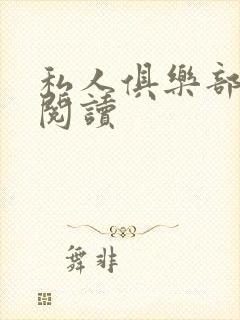 私人俱樂部
閱讀
舞非